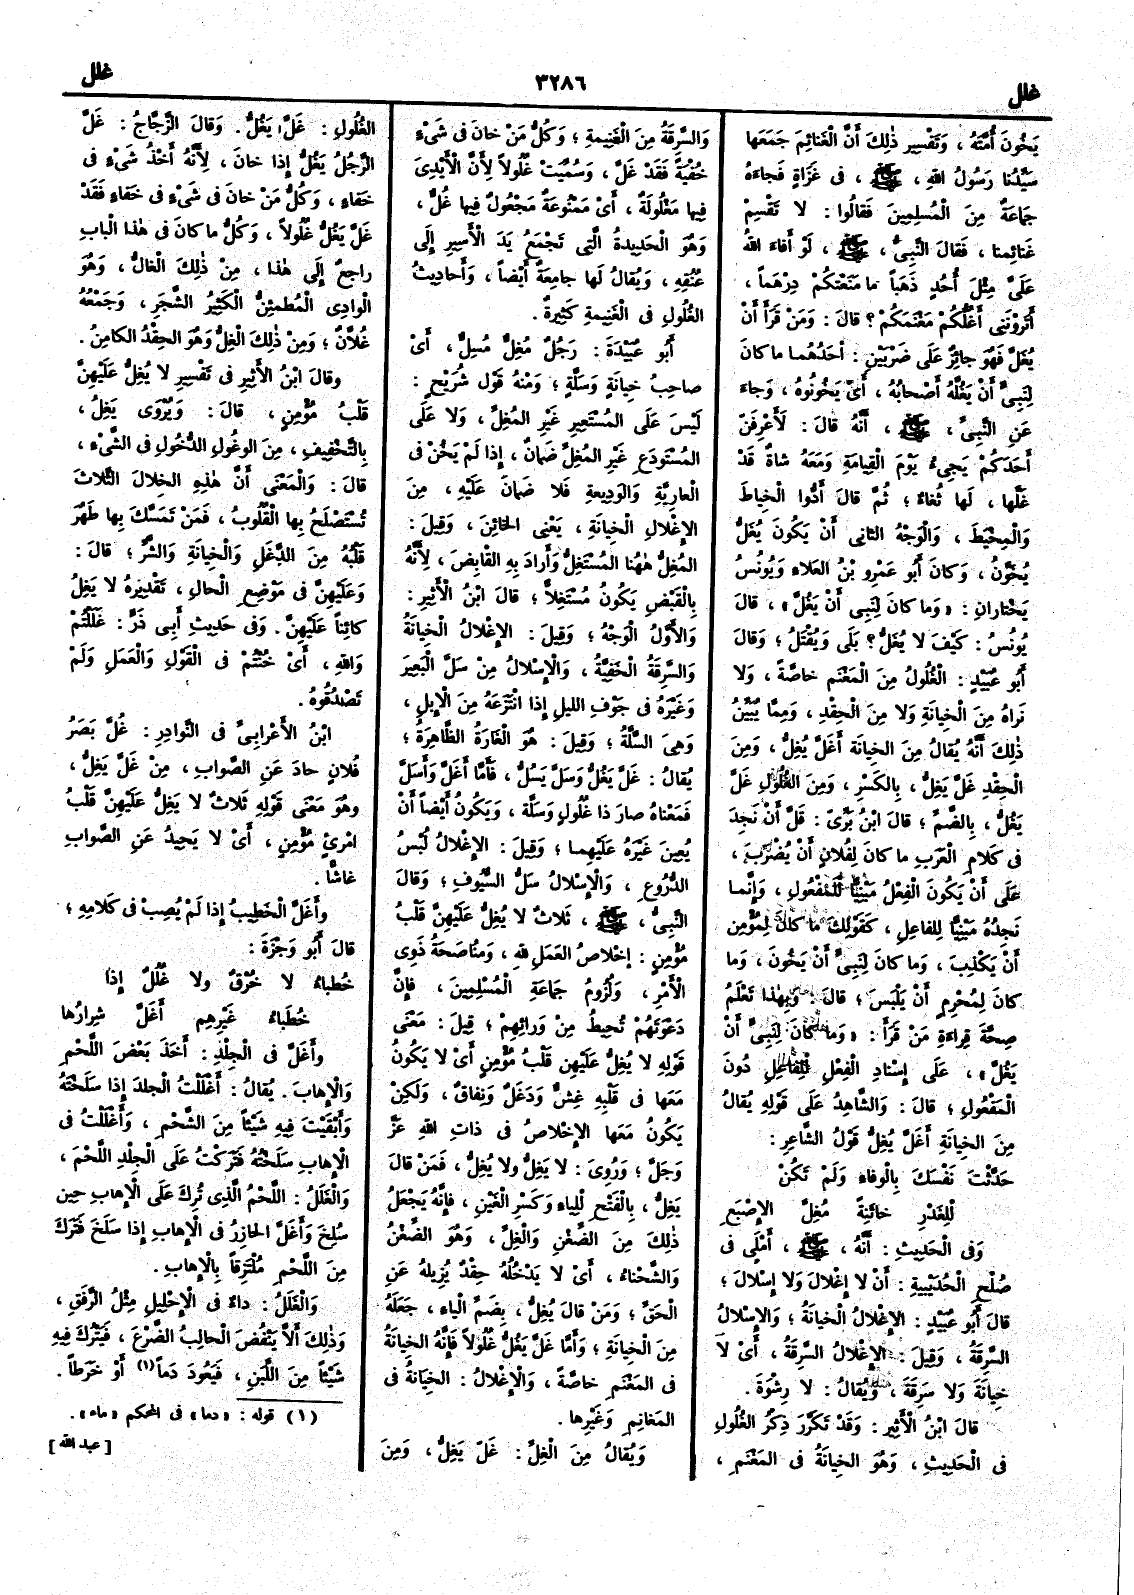 غلل
٣٢٨٦
غلل
يَخُونَ أُمَّتَهُ ، وَتَفْسِير ذٰلِكَ أَنَّ الْغَنائِمَ جَمَعَها
سَيِّدُنا رَسُولُ اللهِ ، ﷺ ، فى غَزاةٍ فَجاءَهُ
جَماعَةٌ مِنَ الْمُسلِمِينَ فَقالُوا : لا تَقْسِمْ
غَنائِمنا ، فَقالَ النَّبِىُّ ، ﷺ ، لَوْ أَفاءَ اللهُ
عَلَىَّ مِثْلَ أُحُدٍ ذَهَباً ما مَنَعْتُكُمْ دِرْهَماً ،
أَتَرَوْنَنِى أَغُلُّكُمْ مَغْنَمَكُمْ؟ قالَ : وَمَنْ قَرَأَ أَنْ
يُغَلَّ فَهُوَ جائِزٌ عَلَى ضَرْبَيْنِ : أَحَدُهُما ما كانَ
لِنَبِىٍّ أَنْ يَغُلَّهُ أَصْحابُهُ ، أَىْ يَخُونُوهُ ، وَجاءَ
عَنِ النَّبِىِّ ، ﷺ ، أَنَّهُ قالَ : لَأَعْرِفَنَّ
أَحَدَكُمْ يَجِىءُ يَوْمَ الْقِيامَةِ وَمَعَهُ شاةٌ قَدْ
غَلَّها ، لَها ثُغاءٌ ؛ ثُمَّ قالَ أَدُّوا الْخِياطَ
وَالْمِخْيَطَ ، وَالْوَجْهُ الثانِى أَنْ يَكُونَ يُغَلُّ
يُخَوَّنُ ، وَكانَ أَبو عَمْرِو بْنُ الْعَلاءِ وَيُونُسُ
يَخْتارانِ : «وَما كانَ لِنَبِى أَنْ يَغُلَّ» ، قالَ
يُونُسُ : كَيْفَ لا يُغَلُّ؟ بَلَى وَيُقْتَلُ ؛ وَقالَ
أَبُو عُبَيْدٍ : الْغُلُولُ مِنَ الْمَغْنَمِ خاصَّةً ، وَلا
نَراهُ مِنَ الْخِيانَةِ وَلا مِنَ الْحِقْدِ ، وَمِمَّا يُبَيِّنُ
ذٰلِكَ أَنَّهُ يُقالُ مِنَ الْخِيانَةِ أَغَلَّ يُغِلُّ ، وَمِنَ
الْحِقْدِ غَلَّ يَغِلُّ ، بِالكَسْرِ ، وَمِنَ الْغُلُولِ غَلَّ
يَغُلُّ ، بِالضَّمِّ ؛ قالَ ابْنُ بَرِّى : قَلَّ أَنْ نَجِدَ
فى كَلامِ الْعَرَبِ ما كانَ لِفُلانٍ أَنْ يُضْرَبَ ،
عَلَى أَنْ يَكُونَ الْفِعْلُ مَبْنِيًّا لِلْمَفْعُولِ ، وَإِنَّما
نَجِدُهُ مَبْنِيًّا لِلفاعِلِ ، كَقَوْلِكَ ما كانَ لِمُؤْمِنٍ
أَنْ يَكْذِبَ ، وَما كانَ لِنَبِىٍّ أَنْ يَخُونَ ، وَما
كانَ لِمُحْرِمٍ أَنْ يَلْبَسَ ؛ قالَ : وَبِهٰذا تَعْلَمُ
صِحَّةَ قِراءَةِ مَنْ قَرَأَ : «وَما كانَ لِنَبِىٍّ أَنْ
يَغُلَّ» ، عَلَى إِسْنادِ الْفِعْلِ لِلْفاعِلِ دُونَ
الْمَفْعُولِ ؛ قالَ : وَالشَّاهِدُ عَلَى قَوْلِهِ يُقالُ
مِنَ الْخِيانَةِ أَغَلَّ يُغِلُّ قَوْلُ الشَّاعِرِ :
حَدَّثْتَ نَفْسَكَ بِالْوَفاءِ وَلَمْ تَكُنْ
لِلْغَدْرِ خائِنَةً مُغِلَّ الإِصْبَعِ
وَفى الْحَدِيثِ : أَنَّهُ ، ﷺ ، أَمْلَى فى
صُلْحِ الْحُدَيْبِيَةِ : أَنْ لا إِغْلالَ وَلا إِسْلالَ ؛
قالَ أَبُو عُبَيْدٍ : الإِغْلالُ الْخِيانَةُ ؛ وَالإِسْلالُ
السَّرِقَةُ ، وَقِيلَ : الإِغْلالُ السَّرِقَةُ ، أَىْ لا
خِيانَةَ وَلا سَرِقَةَ ، وَيُقالُ : لا رِشْوَةَ .
قالَ ابْنُ الْأَثِيرِ : وَقَدْ تَكَرَّرَ ذِكْرُ الْغُلُولِ
فى الْحَدِيثِ ، وَهُوَ الْخِيانَةُ فى الْمَغْنَمِ ،
وَالسَّرِقَةُ مِنَ الْغَنِيمَةِ ؛ وَكُلُّ مَنْ خانَ فى شَىْءٍ
خُفْيَةً فَقَدْ غَلَّ ، وَسُمِّيَتْ غُلُولاً لِأَنَّ الْأَيْدِىَ
فِيها مَغْلُولَةٌ ، أَىْ مَمْنُوعَةٌ مَجْعُولٌ فِيها غُلٌّ ،
وَهُوَ الْحَدِيدَةُ الَّتِى تَجْمَعُ يَدَ الْأَسِيرِ إِلَى
عُنُقِهِ ، وَيُقالُ لَها جامِعةٌ أَيْضاً ، وَأَحادِيثُ
الْغُلُولِ فى الْغَنِيمَةِ كَثِيرَةٌ .
أَبُو عُبَيْدَةَ : رَجُلٌ مُغِلٌّ مُسِلٌّ ، أَىْ
صاحِبُ خِيانَةٍ وَسَلَّةٍ ؛ وَمِنْهُ قَوْلُ شُرَيْحٍ :
لَيْسَ عَلَى الْمُسْتَعِيرِ غَيْرِ الْمُغِلِّ ، وَلا عَلَى
الْمُسْتَودَعِ غَيْرِ الْمُغِلِّ ضَمانٌ ، إِذا لَمْ يَخُنْ فى
الْعارِيَّةِ وَالْوَدِيعةِ فَلا ضَمانَ عَلَيْهِ ، مِنَ
الإِغْلالِ الْخِيانَةِ ، يَعْنِى الخائِنَ ، وَقِيلَ :
الْمُغِلُّ هٰهُنا الْمُسْتَغِلُّ وَأَرادَ بِهِ الْقابِضَ ، لِأَنَّهُ
بِالْقَبْضِ يَكُونُ مُسْتَغِلاًّ ؛ قالَ ابْنُ الْأَثِيرِ :
وَالْأَوَّلُ الْوَجْهُ ؛ وَقِيلَ : الإِغْلالُ الْخِيانَةُ
وَالسَّرِقَةُ الْخَفِيَّةُ ، وَالْإِسْلالُ مِنْ سَلَّ الْبَعِيرَ
وَغَيْرَهُ فى جَوْفِ الليلِ إِذا انْتَزَعَهُ مِنَ الْإِبِلِ ،
وَهِىَ السَّلَّةُ ؛ وَقِيلَ : هُوَ الْغَارَةُ الظَّاهِرَةُ ؛
يُقالُ : غَلَّ يَغُلُّ وَسَلَّ يَسُلُّ ، فَأَمَّا أَغَلَّ وَأَسَلَّ
فَمَعْناهُ صارَ ذا غُلُولٍ وَسَلَّةٍ ، وَيَكُونُ أَيْضاً أَنْ
يُعِينَ غَيْرَهُ عَلَيْهِما ؛ وَقِيلَ : الإِغْلالُ لُبْسُ
الدُّرُوعِ ، وَالْإِسْلالُ سَلُّ السُّيُوفِ ؛ وَقالَ
النَّبِىُّ ، ﷺ ، ثَلاثٌ لا يُغِلُّ عَلَيْهِنَّ قَلْبُ
مُؤْمِنٍ : إِخْلاصُ الْعَمَلِ لله ، وَمُناصَحَةُ ذَوِى
الْأَمْرِ ، وَلُزُومُ جَماعَةِ الْمُسْلِمِينَ ، فَإِنَّ
دَعْوَتَهُمْ تُحِيطُ مِنْ وَرائِهِمْ ؛ قِيلَ : مَعْنَى
قَوْلِهِ لا يُغِلُّ عَلَيْهِن قَلْبُ مُؤْمِنٍ أَىْ لا يَكُونُ
مَعَها فى قَلْبِهِ غِشٌّ وَدَغَلٌ وَنِفاقٌ ، وَلكِنْ
يَكُونُ مَعَها الإِخْلاصُ فى ذاتِ اللهِ عَزَّ
وَجَلَّ ؛ وَرُوِىَ : لا يَغِلُّ ولا يُغِلُّ ، فَمَنْ قالَ
يَغِلُّ ، بِالْفَتْحِ لِلْياءِ وَكَسْرِ الْغَيْنِ ، فَإِنَّهُ يَجْعَلُ
ذٰلِكَ مِنَ الضِّغْنِ وَالْغِلِّ ، وَهُوَ الضِّغْنُ
وَالشَّحْناءُ ، أَىْ لا يَدْخُلُهُ حِقْدٌ يُزِيلُهُ عَنِ
الْحَقِّ ؛ وَمَنْ قالَ يُغِلُّ ، بِضَمِّ الْياءِ ، جَعَلَهُ
مِنَ الْخِيانَةِ ؛ وَأَمَّا غَلَّ يَغُلُّ غُلُولاً فَإِنَّهُ الْخِيانَةُ
فى الْمَغْنَمِ خاصَّةً ، وَالْإِغْلالُ : الْخِيانَةُ فى
الْمَغانِمِ وَغَيْرِها .
وَيُقالُ مِنَ الْغِلِّ : غَلَّ يَغِلُّ ، وَمِنَ
الْغُلُولِ : غَلَّ يَغُلُّ . وَقالَ الزَّجَّاجُ : غَلَّ
الرَّجُلُ يَغُلُّ إِذا خانَ ، لِأَنَّهُ أَخْذُ شَىْءٍ فى
خَفاءٍ ، وَكُلُّ مَنْ خانَ فى شَىْءٍ فى خَفاءٍ فَقَدْ
غَلَّ يَغُلُّ غُلُولاً ، وَكُلُّ ما كانَ فى هٰذا الْبابِ
راجِعٌ إِلَى هٰذا ، مِنْ ذٰلِكَ الْغالُّ ، وَهُوَ
الْوادِى الْمُطْمَئِنُّ الْكَثِيرُ الشَّجَرِ ، وَجَمْعُهُ
غُلاَّنٌ ؛ وَمِنْ ذٰلِكَ الْغِلُّ وَهُوَ الْحِقْدُ الْكامِنُ .
وقالَ ابْنُ الْأَثِيرِ فى تَفْسِيرِ لا يُغِلُّ عَلَيْهِنَّ
قَلْبُ مُؤْمِنٍ ، قالَ : وَيُرْوَى يَغِلُ ،
بِالتَّخْفِيفِ ، مِنَ الوغُولِ الدُّخُولِ فى الشَّىْءِ ،
قالَ : وَالْمَعْنَى أَنَّ هٰذِهِ الْخِلالَ الثَّلاثَ
تُسْتَصْلَحُ بِها الْقُلُوبُ ، فَمَنْ تَمَسَّكَ بِها طَهُرَ
قَلْبُهُ مِنَ الدَّغَلِ وَالْخِيانَةِ وَالشَّرِّ ؛ قالَ :
وَعَلَيْهِنَّ فى مَوْضِعِ الْحالِ ، تَقْدِيرُهُ لا يَغِلُّ
كائِناً عَلَيْهِنَّ . وَفى حَدِيثِ أَبِى ذَرٍّ : غَلَلْتُمْ
وَاللهِ ، أَىْ خُنْتُمْ فى الْقَوْلِ وَالْعَمَلِ وَلَمْ
تَصْدُقُوهُ .
ابْنُ الأَعْرابِىِّ فى النَّوادِرِ : غُلَّ بَصَرُ
فُلانٍ حادَ عَنِ الصَّوابِ ، مِنْ غَلَّ يَغِلُّ ،
وهُوَ مَعْنَى قَوْلِهِ ثَلاثٌ لا يَغِلُّ عَلَيْهِنَّ قَلْبُ
امْرِئٍ مُؤْمِنٍ ، أَىْ لا يَحِيدُ عَنِ الصَّوابِ
غاشًّا .
وأَغَلَّ الْخَطِيبُ إِذا لَمْ يُصِبْ فى كَلامِهِ ؛
قالَ أَبُو وَجْزَةَ :
خُطباءُ لا خُرْقٌ ولا غُلُلٌ إِذا
خُطَباءُ غَيْرِهِم أَغَلَّ شِرارُها
وأَغَلَّ فى الْجِلْدِ : أَخَذَ بَعْضَ اللَّحْمِ
وَالْإِهابِ . يُقالُ : أَغْلَلْتُ الْجلدَ إِذا سَلَخْتَهُ
وَأَبْقَيْتَ فِيهِ شَيْئاً مِنَ الشَّحْمِ ، وَأَغْلَلْتُ فى
الْإِهابِ سَلَخْتُهُ فَتَرَكْتُ عَلَى الْجِلْدِ اللَّحْمَ ،
وَالْغَلَلُ : اللَّحْمُ الَّذِى تُرِكَ عَلَى الْإِهابِ حِين
سُلِخَ وَأَغَلَّ الجازِرُ فى الْإِهابِ إِذا سَلَخَ فَتَرَكَ
مِنَ اللَّحْمِ مُلْتَزِقاً بِالْإِهابِ .
وَالْغَلَلُ : داءٌ فى الْإِحْلِيلِ مِثْلُ الرَّفَقِ ،
وَذٰلِكَ أَلاَّ يَنْفُضَ الْحالِبُ الضَّرْعَ ، فَيَتْرُكَ فِيهِ
شَيْئاً مِنَ اللَّبَنِ ، فَيَعُودَ دَماً (١) أَوْ خَرَطاً .
(١) قوله : «دما» فى المحكم «ماء» .
[ عبد الله ]